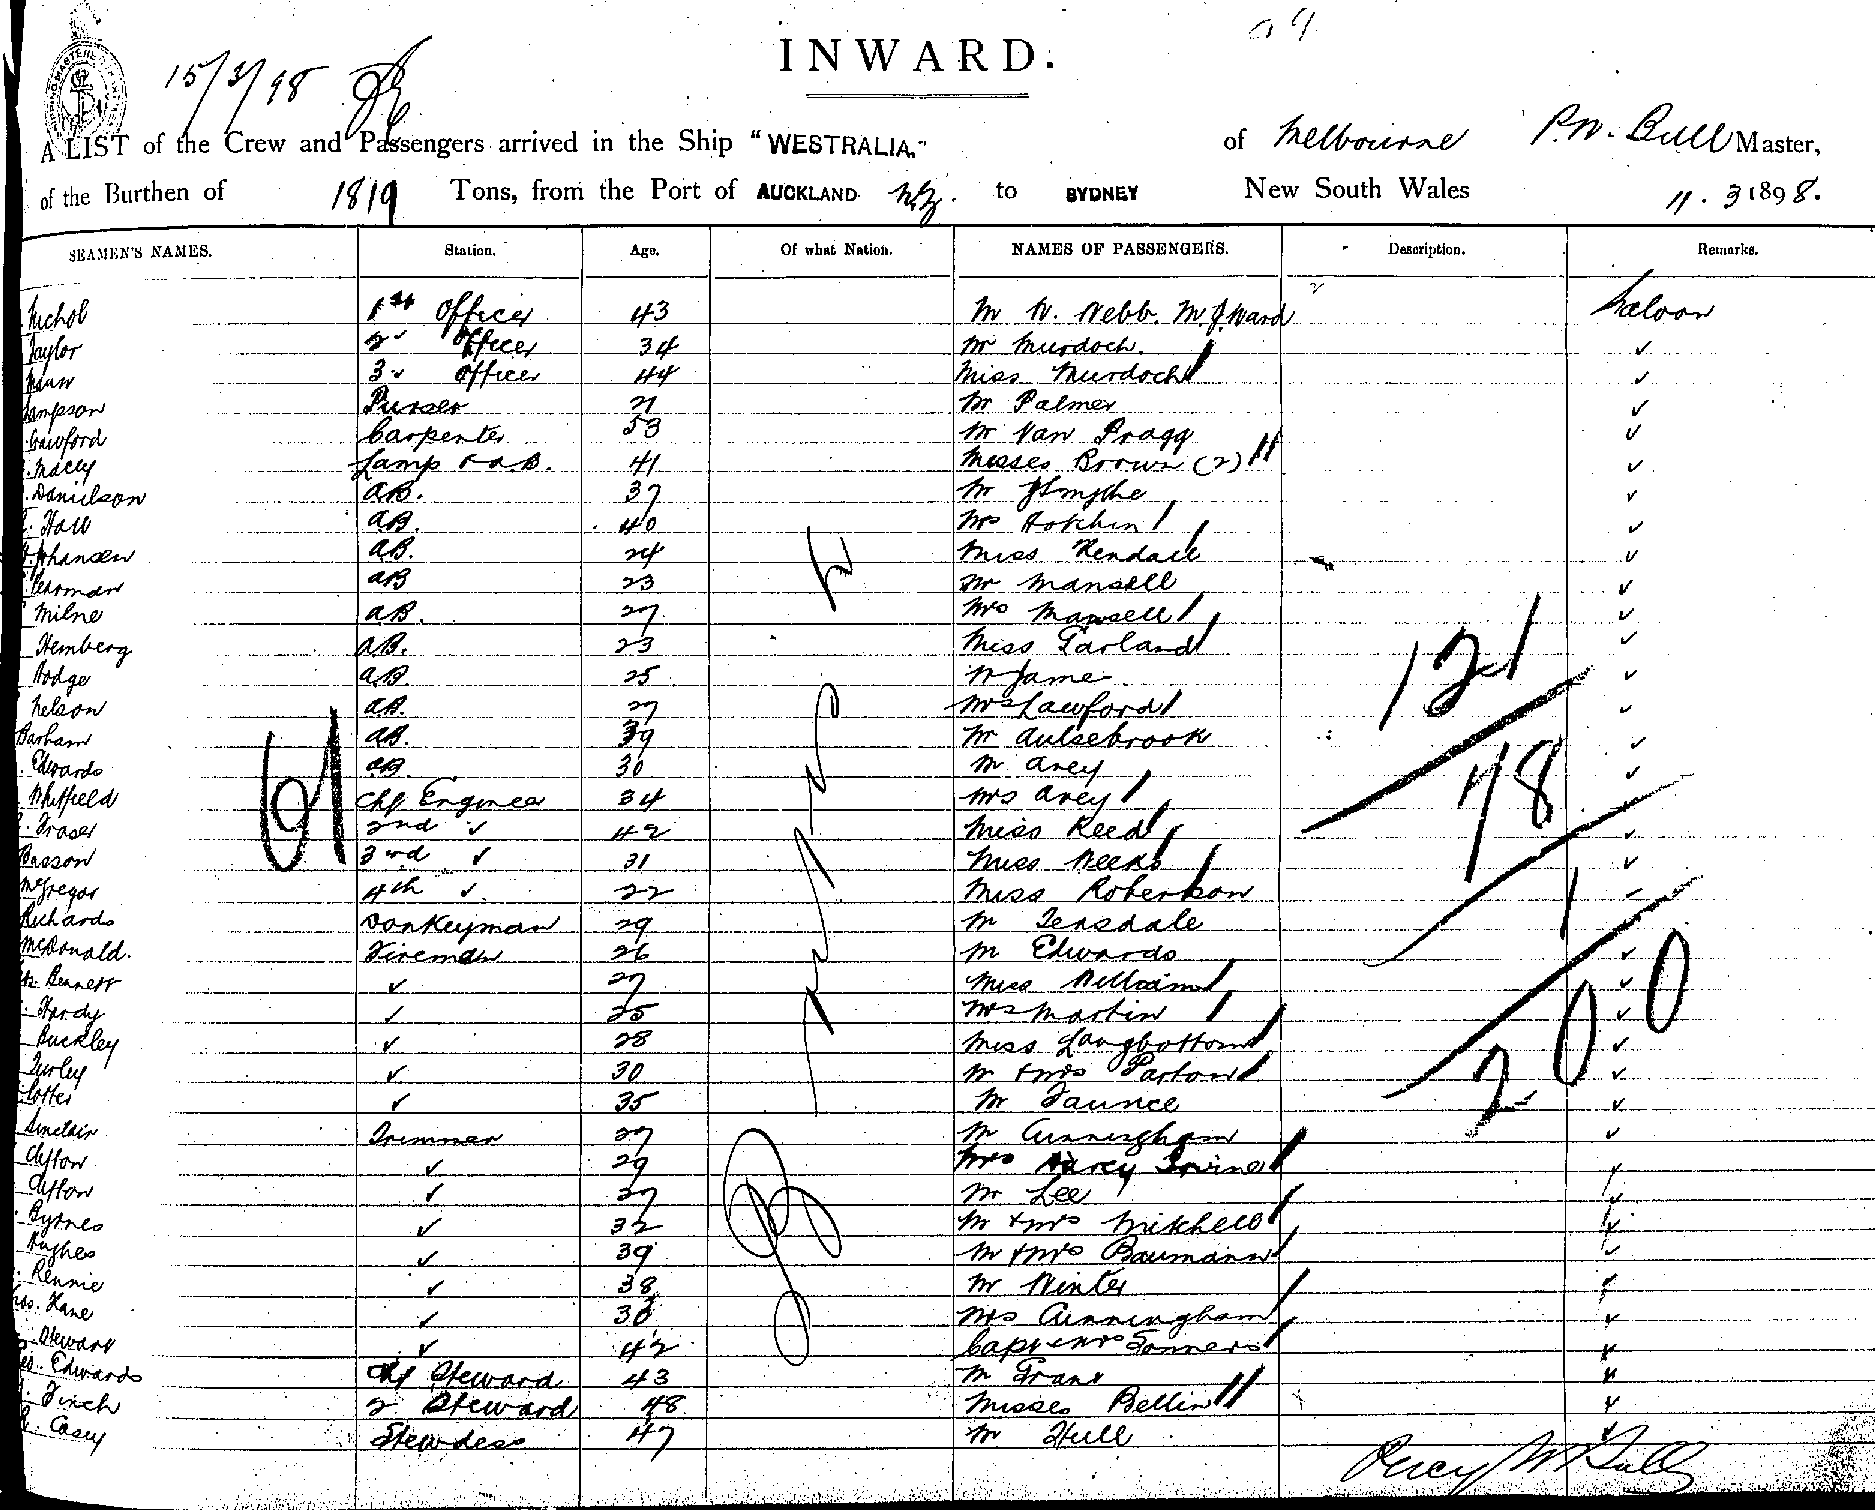 INWARD.
15/3/98
A LIST of the Crew and Passengers arrived in the Ship "WESTRALIA." of Melbourne P.W. Bull Master,
of the Burthen of 1819 Tons, from the Port of AUCKLAND N.Z. to SYDNEY New South Wales 11 . 3 1898.
SEAMEN'S NAMES. Station. Age. Of what Nation. NAMES OF PASSENGERS. Description. Remarks.
Nichol 1st Officer 43 Mr W. Webb. M. J. Ward Saloon
Taylor 2d Officer 34 Mr Murdoch. ✓
Mann 3d Officer 44 Miss Murdoch ✓
Sampson Purser 21 Mr Palmer ✓
Crawford Carpenter 53 Mr Van Pragg ✓
Macey Lamps & A.B. 41 Misses Brown (2) ✓
Danielson A.B. 37 Mr Smythe ✓
Hall A.B. 40 Mrs Hotchin ✓
Johansen A.B. 24 Miss Kendall ✓
AB 23 Mr Mansell ✓
Milne A.B. 27 Mrs Mansell ✓
Hemberg A.B. 23 Miss Garland ✓
Hodge A.B. 25 Mr Jame ✓
Nelson A.B. 27 Mrs Lawford ✓
Barham A.B. 39 Mr Aulsebrook ✓
Edwards A.B. 30 Mr Arey ✓
Whitfield Chf Engineer 34 Mrs Arey ✓
Fraser 2nd ✓ 42 Miss Reed ✓
Basson 3rd ✓ 31 Miss Weeks ✓
McGregor 4th ✓ 22 Miss Robertson
Richards Donkeyman 29 Mr Teasdale
McDonald. Fireman 26 Mr Edwards ✓
Bennett ✓ 27 Miss William ✓
Hardy ✓ 25 Mrs Martin ✓
Buckley ✓ 28 Miss Langbottom ✓
Turley ✓ 30 Mr & Mrs Parton ✓
Cotter ✓ 35 Mr Faunce ✓
Sinclair Trimmer 27 Mr Cunningham ✓
Clifton ✓ 29 Mrs Irvine
Clifton ✓ 27 Mr Lee ✓
Byrnes ✓ 32 Mr & Mrs Mitchell ✓
Hughes ✓ 39 Mr & Mrs Baumann ✓
Rennie ✓ 38 Mr Winter ✓
Kane ✓ Mrs Cunningham ✓
Stewart ✓ 42 Capt & Mrs Sommers ✓
Edwards Chf Steward 43 Mr Grant ✓
Finch 2 Steward 48 Misses Bellin ✓
Casey Stewdess 47 Mr Hull ✓
61
121
78
1
200
Percy W Bull